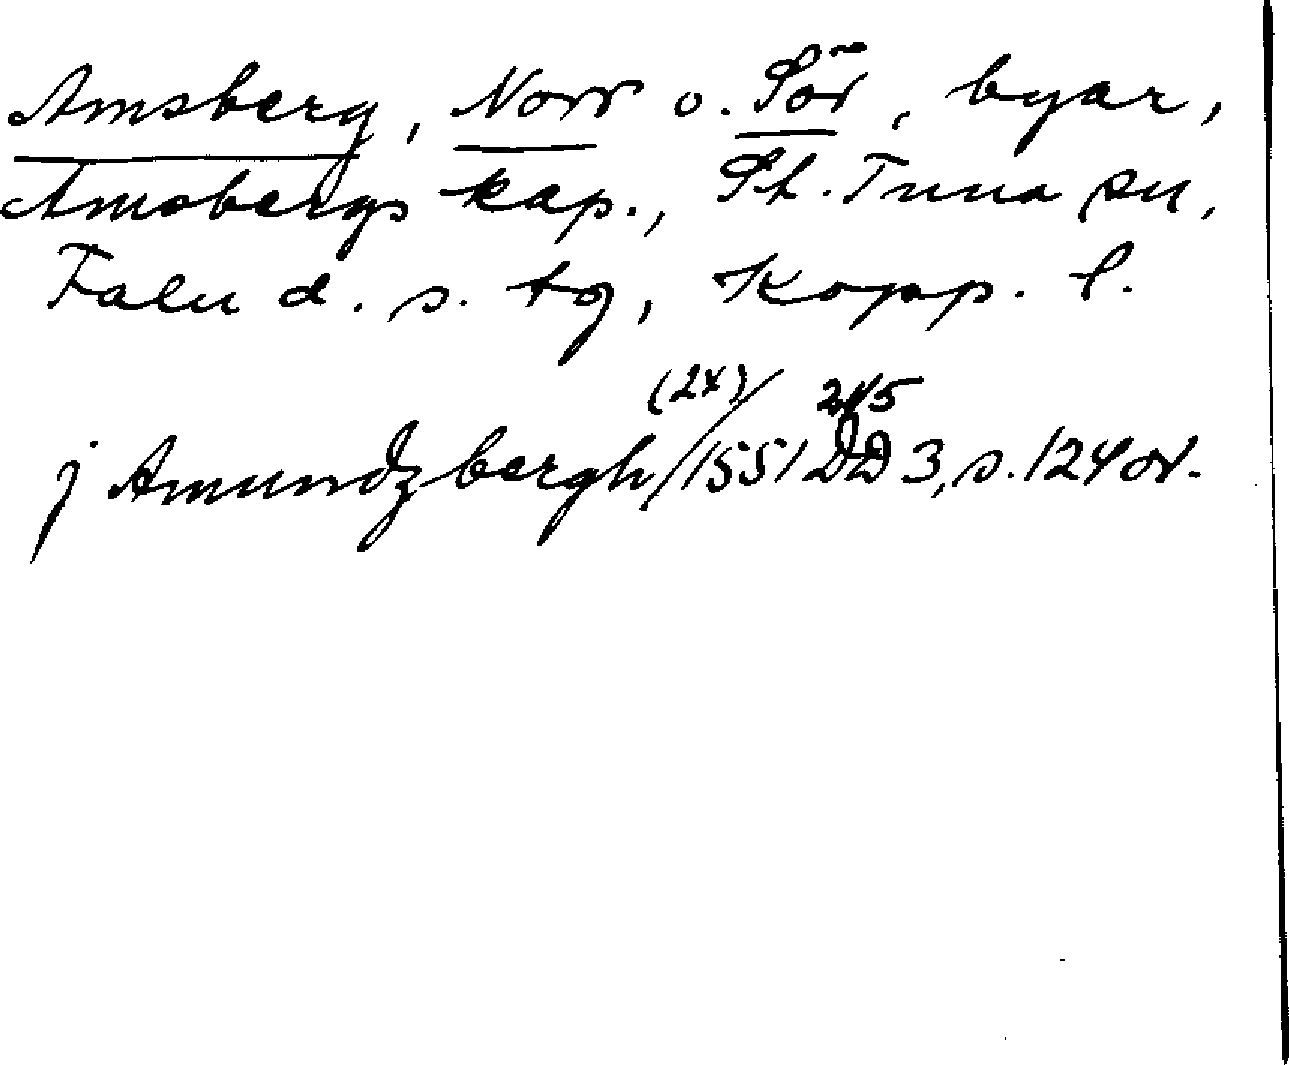 Amsberg, Norr o. Sör, byar,
Amsbergs kap., St. Tuna sn,
Falu d. s. tg, Kopp. l.
j Amundzbergh (2x) / 1551 24/5 DD 3, s. 124 or.